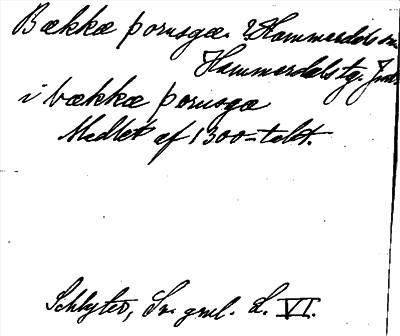 Bækkæ þorusgæ. ? Hammerdals sn
Hammerdals tg. Jmtl.
i bækkæ þorusgæ
Medlet af 1300-talet.
Schlyter, Sv. gml. L. VI.